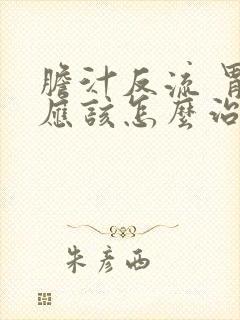 膽汁反流 胃
應該怎麼治
朱彥西